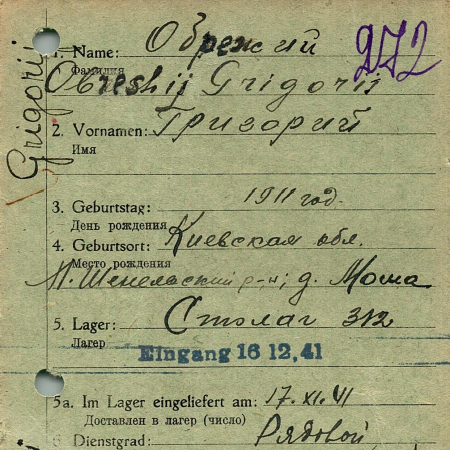 1. Name: Обрежий 272
Фамилия
Obreshij Grigorij
Grigorij
2. Vornamen: Григорий
Имя
3. Geburtstag: 1911 год.
День рождения
4. Geburtsort: Киевская обл.
Место рождения
р-н; д. Моша
5. Lager: Сталаг 312
Лагерь
Eingang 16 12, 41
5a. Im Lager eingeliefert am: 17. XI. 41
Доставлен в лагерь (число)
6 Dienstgrad: Рядовой,